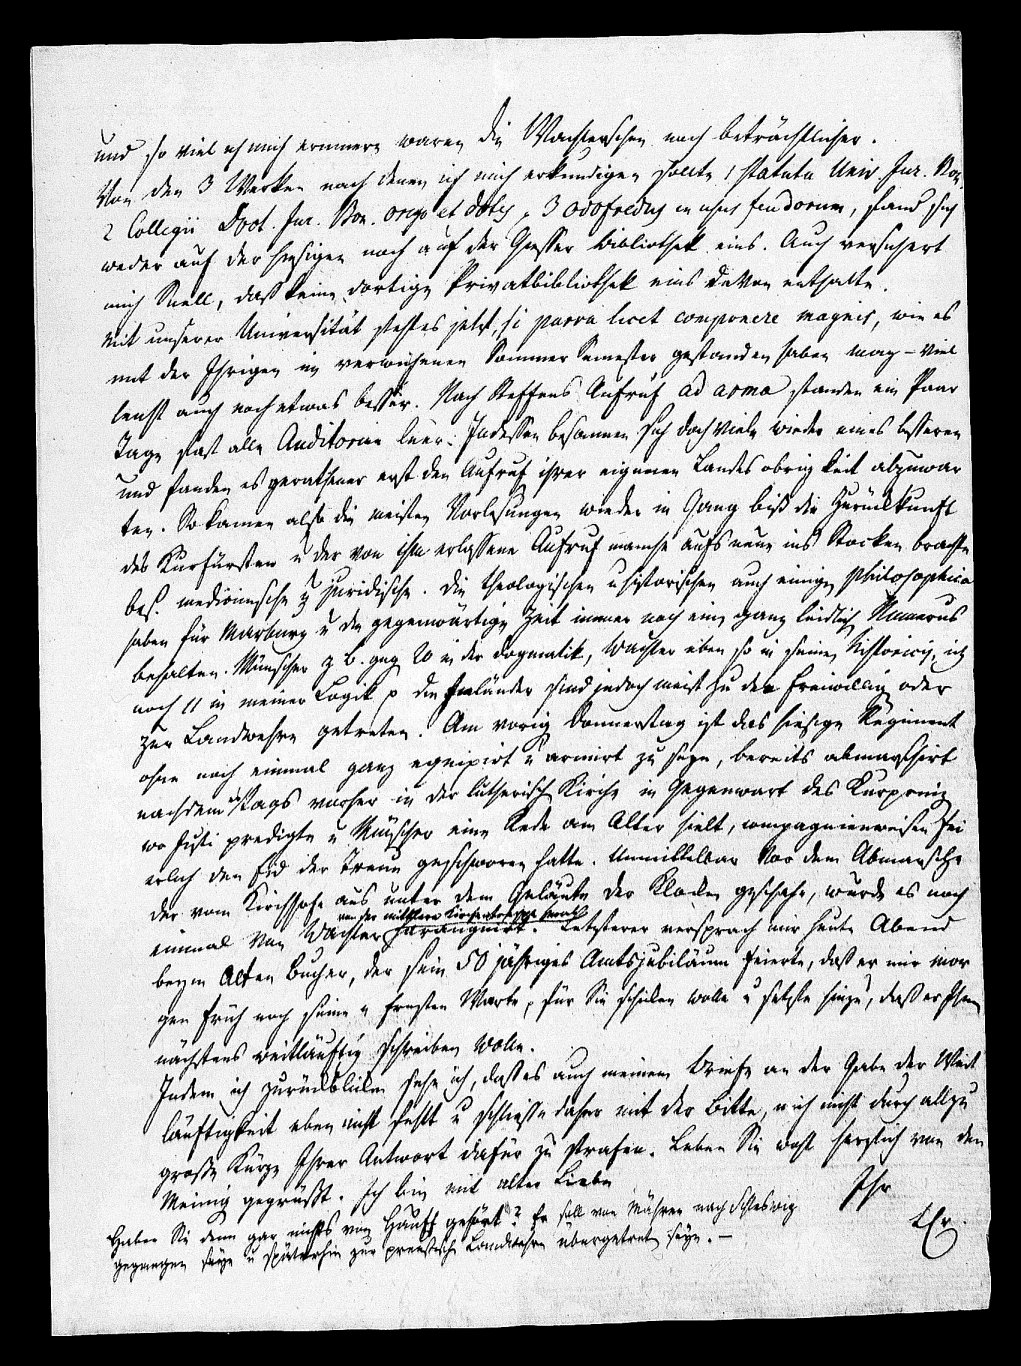 und so viel ich mich erinnere waren die Wachlerschen noch beträchtlicher.
Von den 3 Werken nach denen ich mich erkundigen sollte 1 statuta Univ. Jur. Bon.
2 Collegii Doct. Jur. Bon. origo et dotes, 3 Odofredus in usus feudorum, fand sich
weder auf der hiesigen noch auf der Giesser Bibliothek eins. Auch versichert
mich Snell, daß keine dortige Privatbibliothek eins davon enthalte.
Mit unserer Universität steht es jetzt, si parva licet componere magnis, wie es
mit der Ihrigen im verwichenen Sommer Semester gestanden haben mag – viel
leicht auch noch etwas besser. Nach Steffens Aufruf ad arma standen ein Paar
Tage fast alle Auditorien leer. Indessen besannen sich doch viele wieder eines besseren
und fanden es gerathener erst den Aufruf ihrer eigenen Landesobrigkeit abzuwar
ten. So kamen also die meisten Vorlesungen wieder in Gang biß die Zurückkunft
des Kurfürsten u der von ihm erlassene Aufruf manche aufs neue ins Stocken brachte
bes. medicinische u juridische. Die theologischen u historischen auch einige philosophica
haben für Marburg u die gegenwärtige Zeit immer noch eine ganz leidlich Numerus
behalten. Münscher z. B. geg. 20 in der Dogmatik, Wachler eben so in seinen Historicis, ich
noch 11 in meiner Logik p Die Inländer sind jedoch meist zu den Freiwillig oder
zur Landwehre getreten. Am vorig Donnerstag ist das hiesige Regiment
ohne noch einmal ganz equipirt u armirt zu seyn, bereits abmarschirt
nachdem Tags vorher in der lutherisch Kirche in Gegenwart des Kurprinz
wo Justi predigte u Münscher eine Rede am Altar hielt, compagnienweise fei
erlich den Eid der Treue geschworen hatte. Unmittelbar vor dem Abmarsche
der vom Kirchhofe aus unter dem Geläute der Klocken geschahe, wurde es noch
von der mittlern Kirchentreppe herab
einmal von Wachler harangiert. Letzterer versprach mir heute Abend
beym alten Bucher, der sein 50 jähriges Amtsjubiläum feierte, daß er mir mor
gen früh noch seine Ernsten Worte, für Sie schicken wolle u setzte hinzu, daß er Ihnen
nächstens weitläuftig schreiben wolle.
Indem ich zurückblicke sehe ich, daß es auch meinem Briefe an der Gabe der Weit
läuftigkeit eben nicht fehlt u schliesse daher mit der Bitte, mich nicht durch allzu
große Kürze Ihrer Antwort dafür zu strafen. Leben Sie wohl herzlich von den
Meinig gegrüßt. Ich bin mit alter Liebe
Ihr
Haben Sie denn gar nichts von Hauff gehört? Er soll von Mähren nach Schleswig
gegangen seyn u späterhin zur preussisch Landwehre übergetret seyn. –